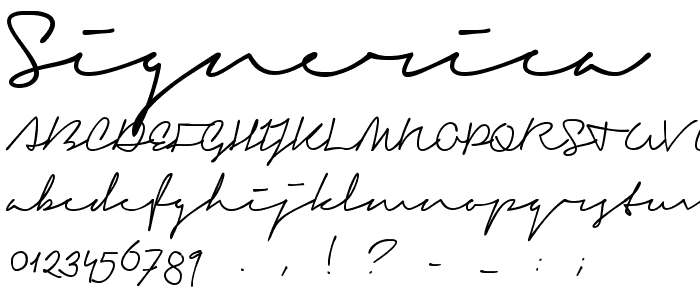 Signerica
ABCDEFGHIJKLMNOPQRSTUV
abcdefghijklmnopqrstuv
0123456789 . , ! ? - _ : ;